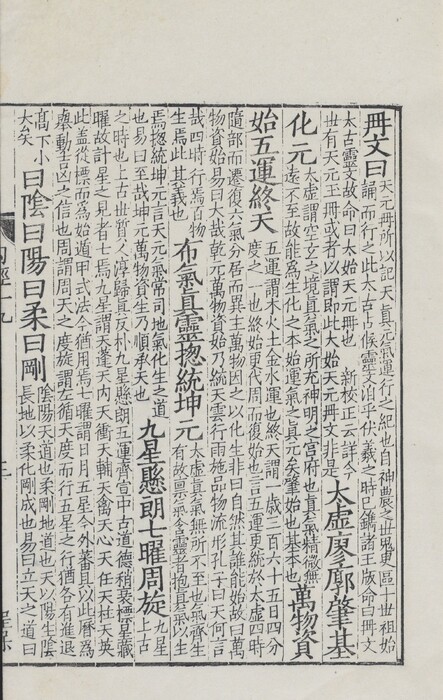 冊文曰
天元冊所以記天真元氣運行之紀也自神農之世鬼臾區十世祖始
誦而行之此太古占候靈文洎乎伏羲之時已鐫諸玉版命曰冊文
太古靈文故命曰太始天元冊也　新校正云詳今
世有天元玉冊或者以謂即此太始天元冊文非是
太虛廖廓肇基
化元
太虛謂空玄之境真氣之所充神明之宮府也真氣精微無
遠不至故能為生化之本始運氣之真元矣肇始也基本也
萬物資
始五運終天
五運謂木火土金水運也終天謂一歲三百六十五日四分
度之一也終始更代周而復始也言五運更統於太虛四時
隨部而遷復六氣分居而異主萬物因之以化生非曰自然其誰能始故曰萬
物資始易曰大哉乾元萬物資始乃統天雲行雨施品物流形孔子曰天何言
哉四時行焉百物
生焉此其義也
布氣真靈揔統坤元
太虛真氣無所不至也氣齊生
有故稟氣含靈者抱真氣以生
焉揔統坤元言天元氣常司地氣化生之道
也易曰至哉坤元萬物資生乃順承天也
九星懸朗七曜周旋
九星
上古
之時也上古世質人淳歸真反朴九星懸朗五運齊宣中古道德稍衰標星藏
曜故計星之見者七焉九星謂天蓬天内天衝天輔天禽天心天任天柱天英
此蓋從標而為始遁甲式法今猶用焉七曜謂日月五星今外蕃具以此曆為
舉動吉凶之信也周謂周天之度旋謂左循天度而行五星之行猶各有進退
高下小
大矣
曰陰曰陽曰柔曰剛
陰陽天道也柔剛地道也天以陽生陰
長地以柔化剛成也易曰立天之道曰